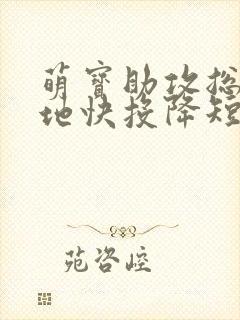 萌宝助攻总
地快投降短
苑咨崆